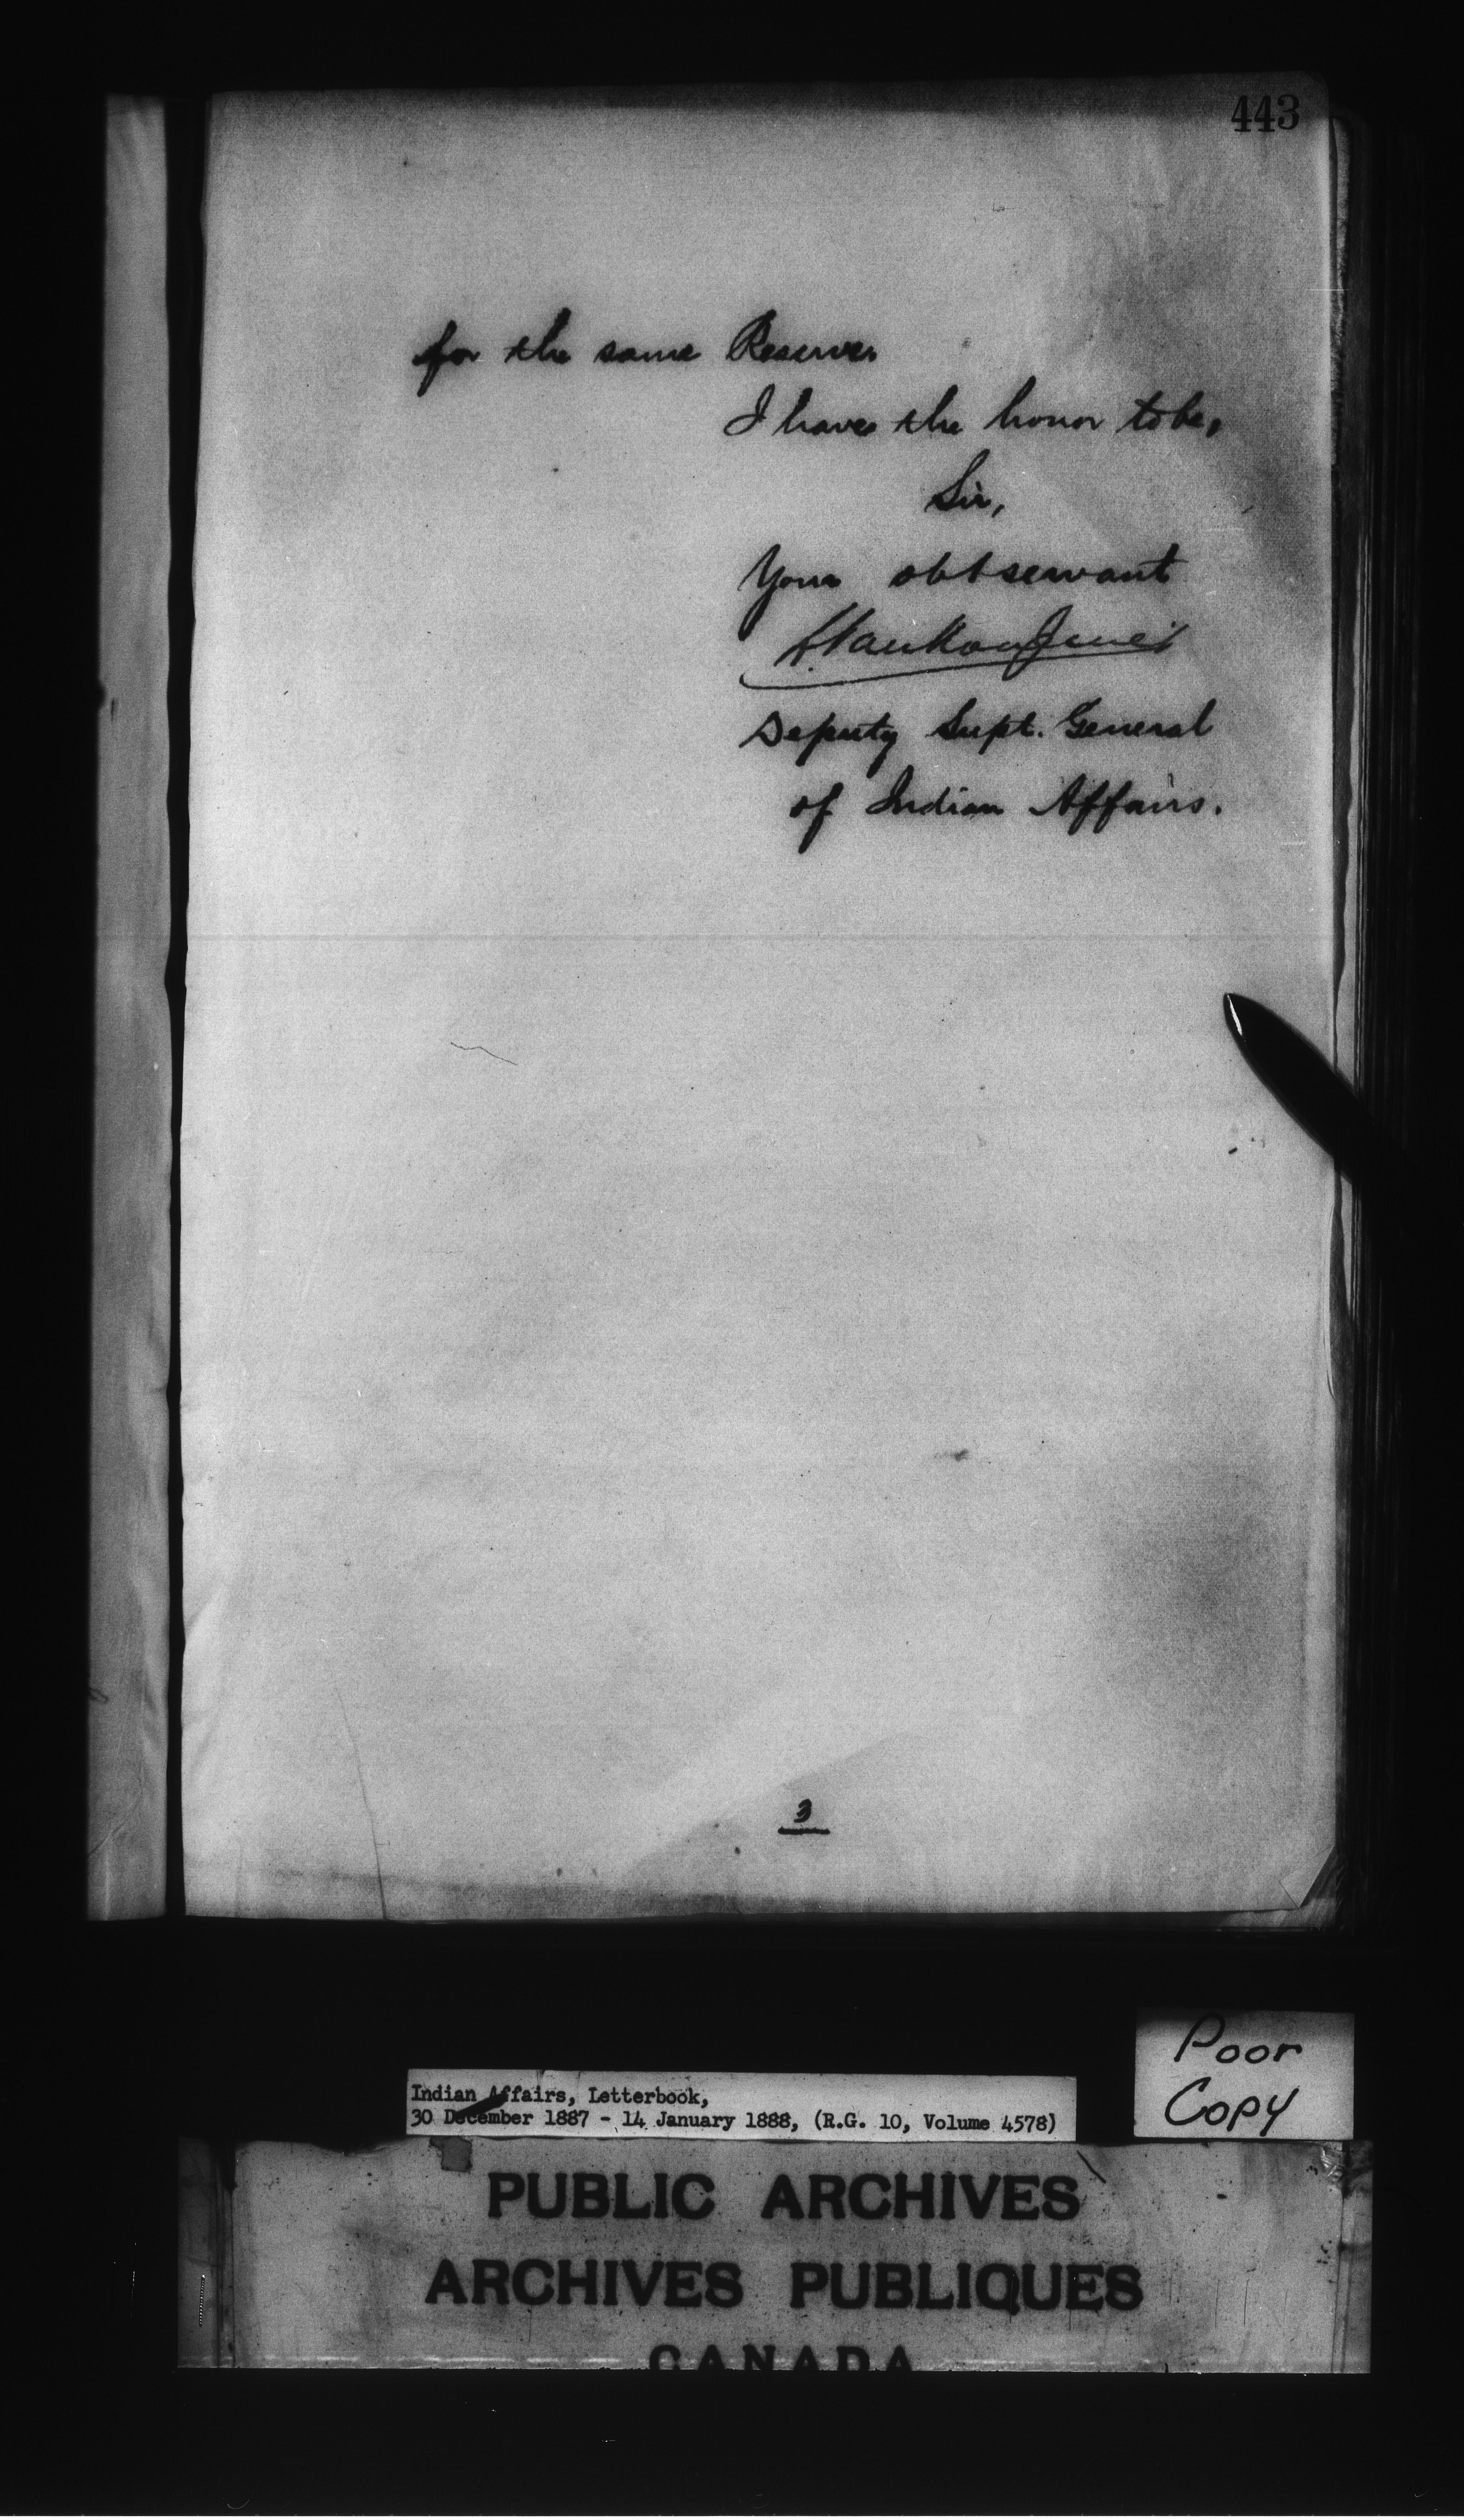 443
for the same Reserve.
I have the honor to be,
Sir,
Your obt servant
L. Vankoughnet
Deputy Supt. General
of Indian Affairs.
3
Poor
Copy
Indian Affairs, Letterbook,
30 December 1887 - 14 January 1888, (R.G. 10, Volume 4578)
PUBLIC ARCHIVES
ARCHIVES PUBLIQUES
CANADA